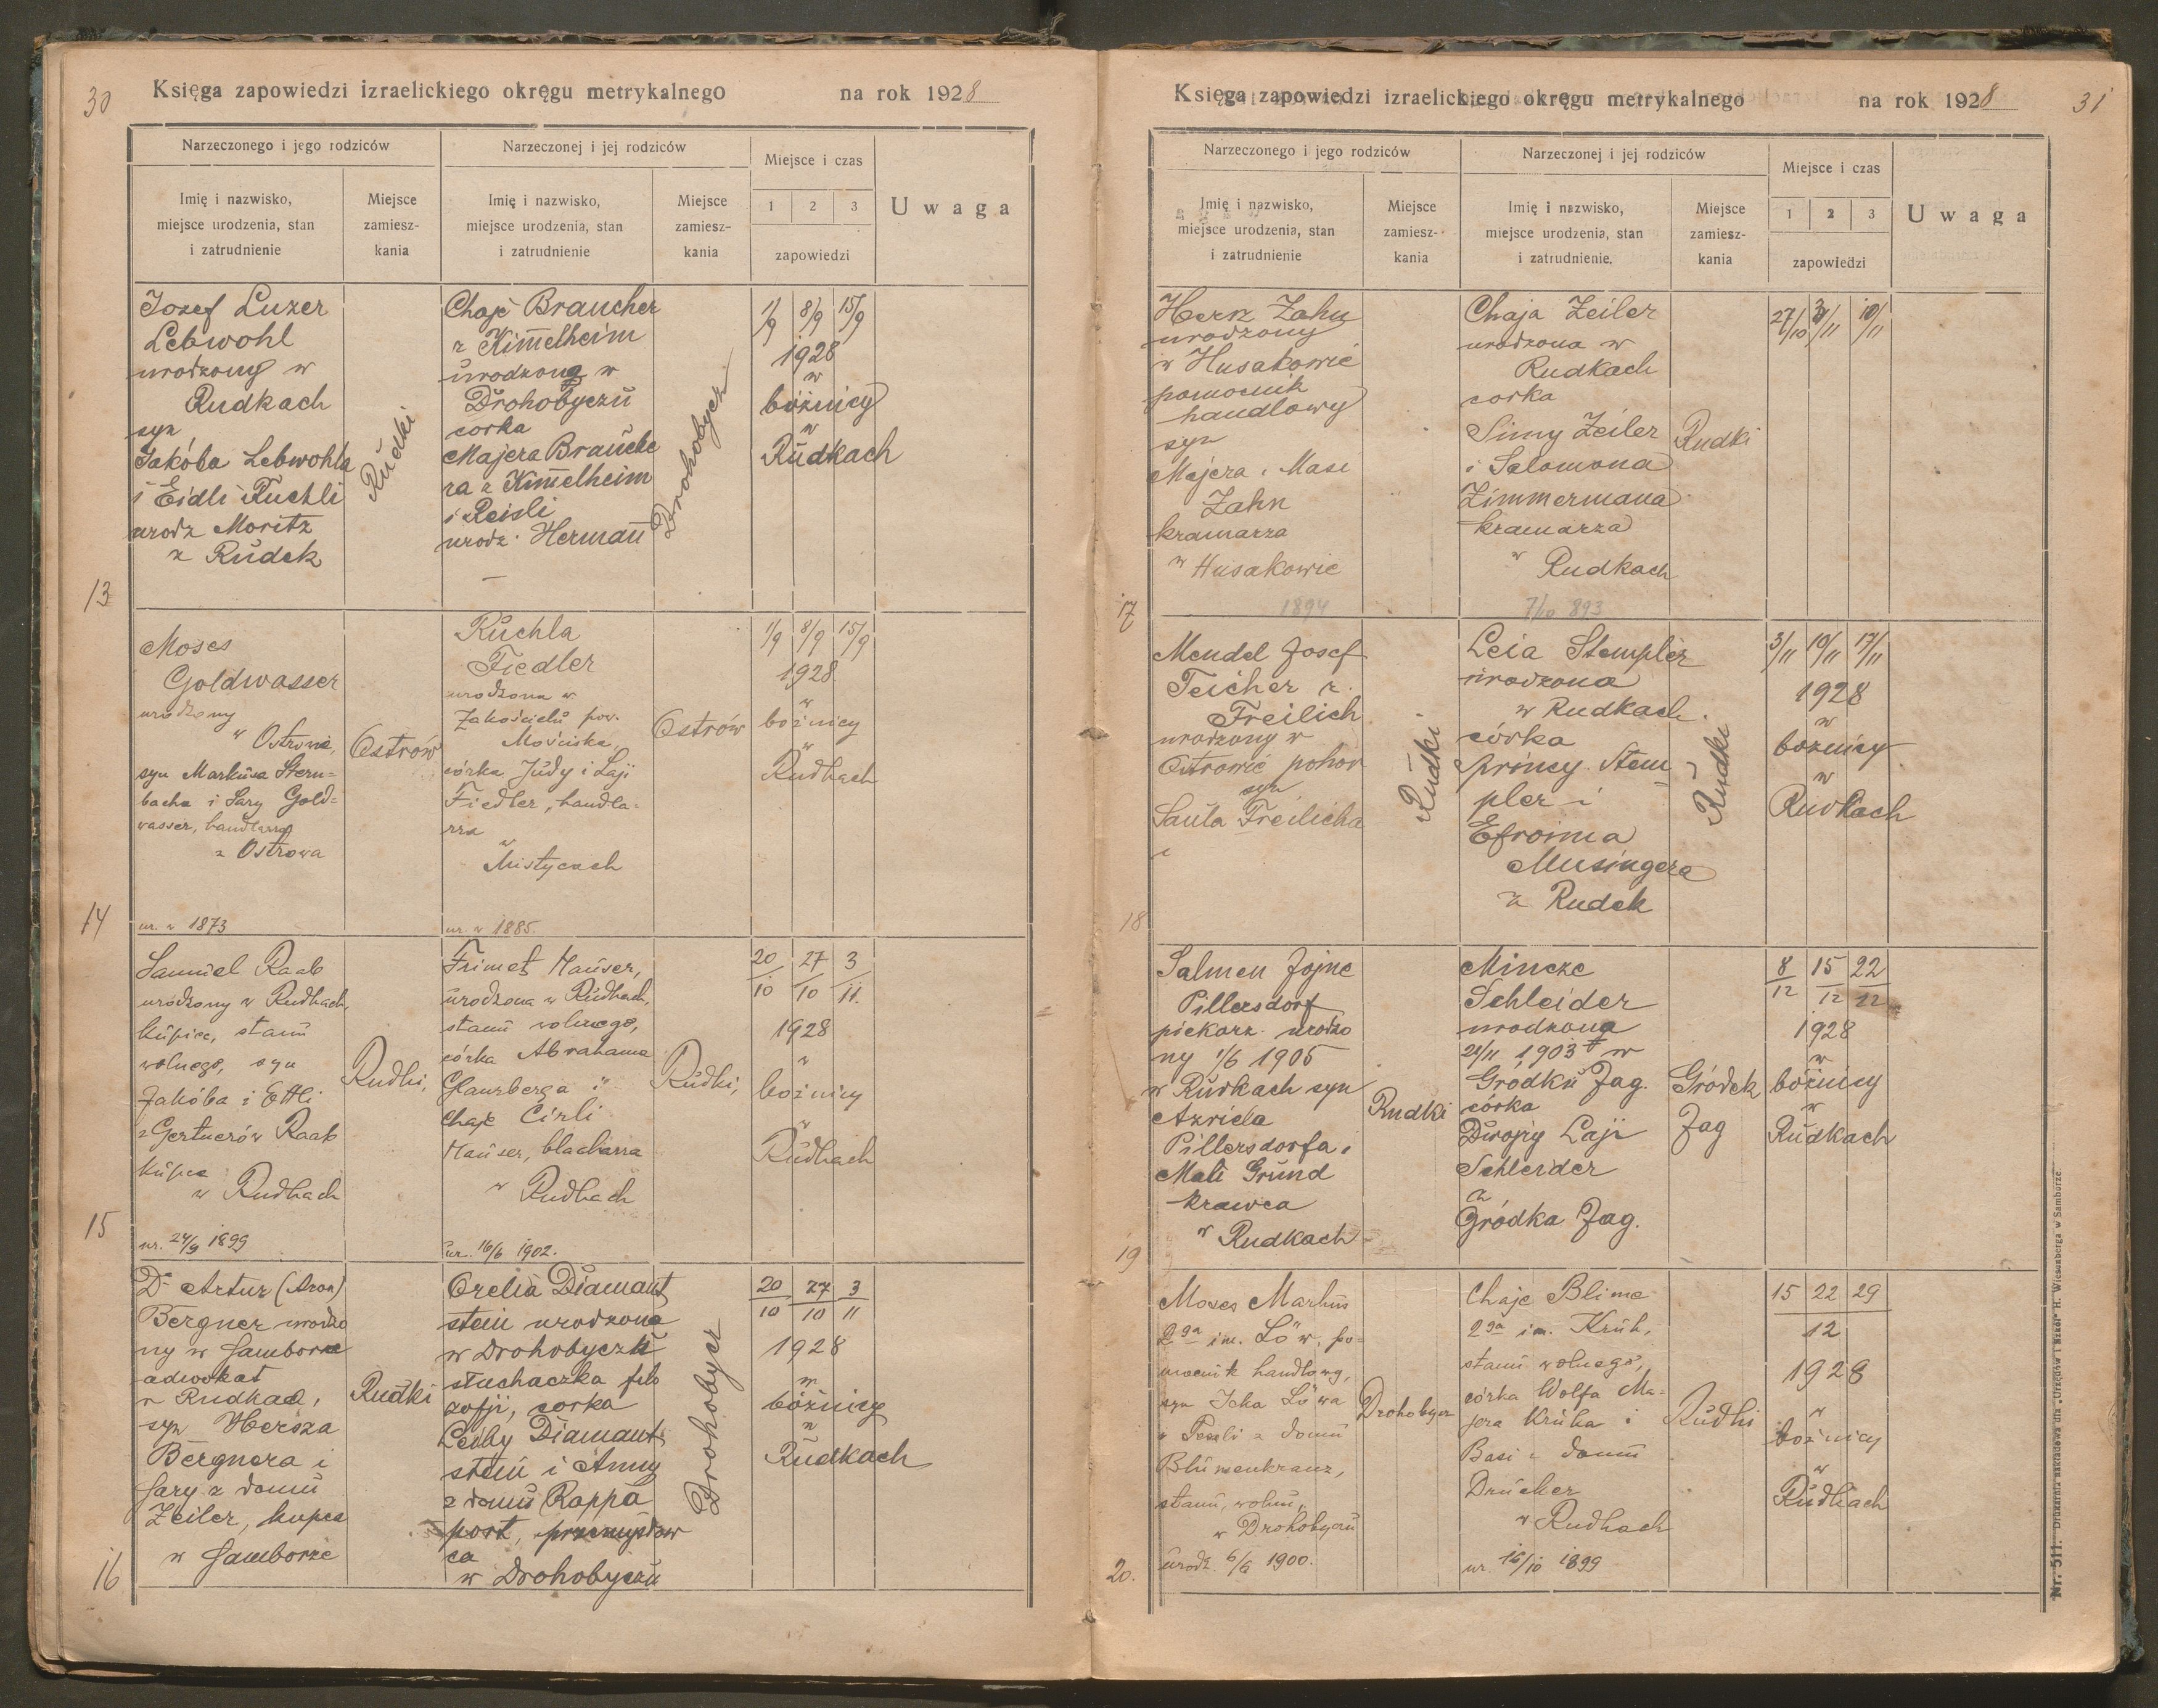 30
Księga zapowiedzi izraelickiego okręgu metrykalnego na rok 1928
Narzeczonego i jego rodziców
Narzeczonej i jej rodziców
Miejsce i czas
Uwaga
Imię i nazwisko,
miejsce urodzenia, stan
i zatrudnienie
Miejsce
zamiesz-
kania
Imię i nazwisko,
miejsce urodzenia, stan
i zatrudnienie
Miejsce
zamiesz-
kania
1 2 3
zapowiedzi
13
Josef Luzer
Lebwohl
urodzony w
Rudkach
syn
Jakóba Lebwohla
i Eidli Ruchli
urodz Moritz
z Rudek
Rudki
Chaje Braucher
z Kimelheim
urodzona w
Drohobyczu
corka
Majera Brauche
ra z Kimelheim
i Reisli
urodz. Herman
Drohobycz
1/9 8/9 15/9
1928
w
bóżnicy
w
Rudkach
14
Moses
Goldwasser
urodzony
w Ostrowie,
syn Markusa Stern-
bacha i Sary Gold-
wasser, handlarza
z Ostrowa
ur. w 1873
Ostrów
Ruchla
Fiedler
urodzona w
Zakościelu pow.
Mościska,
córka Judy i Laji
Fiedler, handla-
rza
w
Mistycach
ur. w 1885.
Ostrów
1/9 8/9 15/9
1928
w
bożnicy
w
Rudkach
15
Samuel Raab
urodzony w Rudkach,
kupiec, stanu
wolnego, syn
Jakóba i Ettli
z Gertnerów Raab
kupca
w Rudkach
ur. 24/9 1899
Rudki,
Frimet Hauser,
urodzona w Rudkach,
stanu wolnego,
córka Abrahama
Glanzberga i
Chaje Cirli
Hauser, blacharza
w Rudkach
ur. 16/6 1902.
Rudki,
20/10 27/10 3/11.
1928
w
bożnicy
w
Rudkach
16
Dr Artur (Aron)
Bergner urodzo
ny w Samborze
adwokat
w Rudkach,
syn Hersza
Bergnera i
Sary z domu
Zeiler, kupca
w Samborze
Rudki
Orelia Diamant
stein urodzona
w Drohobyczu
słuchaczka filo
zofji, corka
Leiby Diamant
stein i Anny
z domu Rappa
port, przemysłow
ca
w Drohobyczu
Drohobycz
20/10 27/10 3/11
1928
w
bóżnicy
w
Rudkach
31
Księga zapowiedzi izraelickiego okręgu metrykalnego na rok 1928
Narzeczonego i jego rodziców
Narzeczonej i jej rodziców
Miejsce i czas
Uwaga
Imię i nazwisko,
miejsce urodzenia, stan
i zatrudnienie
Miejsce
zamiesz-
kania
Imię i nazwisko,
miejsce urodzenia, stan
i zatrudnienie.
Miejsce
zamiesz-
kania
1 2 3
zapowiedzi
17
Herz Zahn
urodzony
w Husakowie
pomocnik
handlowy
syn
Majera i Masi
Zahn
kramarza
w Husakowie
1894
Chaja Zeiler
urodzona w
Rudkach
corka
Simy Zeiler
i Salomona
Zimmermana
kramarza
w Rudkach
7/10 893
Rudki
27/10 3/11 10/11
18
Mendel Josef
Teicher z.
Freilich
urodzony w
Ostrowie pohor
syn
Saula Freilicha
i
Rudki
Leia Stempler
urodzona
w Rudkach.
córka
Princy Stem
pler i
Efroima
Musingera
z Rudek
Rudki
3/11 10/11 17/11
1928
w
bożnicy
w
Rudkach
19
Salmen Jojne
Pillersdorf
piekarz urodzo
ny 1/6 1905
w Rudkach syn
Azriela
Pillersdorfa i
Mali Grund
krawca
w Rudkach
Rudki
Mincze
Schleider
urodzona
21/11 1903 w
Gródku Jag.
córka
Dwojry Laji
Schleider
z
Gródka Jag.
Gródek
Jag
8/12 15/12 22/12
1928
w
bóżnicy
w
Rudkach
20.
Moses Markus
2ga im. Löw, po-
mocnik handlowy,
syn Icka Löwa
i Pesli z domu
Blumenkranz,
stanu, wolnu,
w Drohobyczu
urodz. 6/6 1900.
Drohobycz
Chaje Blime
2ga im. Kruh,
stanu wolnego,
córka Wolfa Ma-
jera Kruha i
Basi z domu
Drucker
w Rudkach
ur. 16/10 1899
Rudki
15 22 29
12
1928
w
bożnicy
w
Rudkach
Nr. 511. Drukarnia nakładowa dla „Urzędów i Szkół" H. Wiesenberga w Samborze